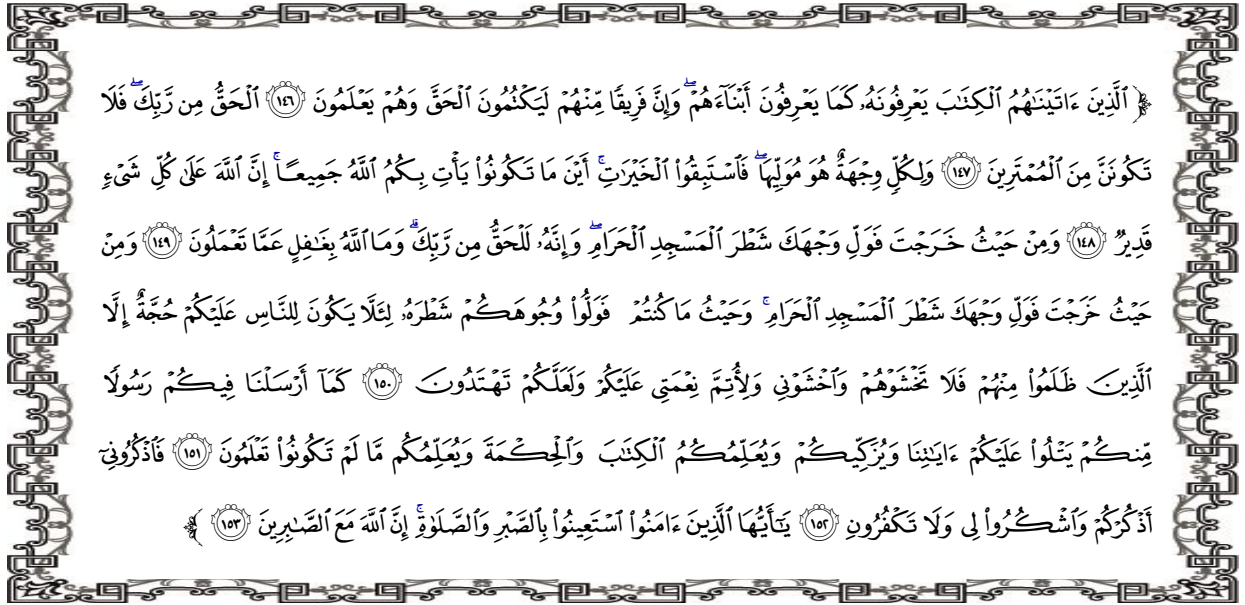 ﴿ ٱلَّذِينَ ءَاتَيۡنَٰهُمُ ٱلۡكِتَٰبَ يَعۡرِفُونَهُۥ كَمَا يَعۡرِفُونَ أَبۡنَآءَهُمۡۖ وَإِنَّ فَرِيقٗا مِّنۡهُمۡ لَيَكۡتُمُونَ ٱلۡحَقَّ وَهُمۡ يَعۡلَمُونَ ١٤٦ ٱلۡحَقُّ مِن رَّبِّكَۖ فَلَا
تَكُونَنَّ مِنَ ٱلۡمُمۡتَرِينَ ١٤٧ وَلِكُلّٖ وِجۡهَةٌ هُوَ مُوَلِّيهَاۖ فَٱسۡتَبِقُواْ ٱلۡخَيۡرَٰتِۚ أَيۡنَ مَا تَكُونُواْ يَأۡتِ بِكُمُ ٱللَّهُ جَمِيعًاۚ إِنَّ ٱللَّهَ عَلَىٰ كُلِّ شَيۡءٖ
قَدِيرٞ ١٤٨ وَمِنۡ حَيۡثُ خَرَجۡتَ فَوَلِّ وَجۡهَكَ شَطۡرَ ٱلۡمَسۡجِدِ ٱلۡحَرَامِۖ وَإِنَّهُۥ لَلۡحَقُّ مِن رَّبِّكَۗ وَمَا ٱللَّهُ بِغَٰفِلٍ عَمَّا تَعۡمَلُونَ ١٤٩ وَمِنۡ
حَيۡثُ خَرَجۡتَ فَوَلِّ وَجۡهَكَ شَطۡرَ ٱلۡمَسۡجِدِ ٱلۡحَرَامِۚ وَحَيۡثُ مَا كُنتُمۡ فَوَلُّواْ وُجُوهَكُمۡ شَطۡرَهُۥ لِئَلَّا يَكُونَ لِلنَّاسِ عَلَيۡكُمۡ حُجَّةٌ إِلَّا
ٱلَّذِينَ ظَلَمُواْ مِنۡهُمۡ فَلَا تَخۡشَوۡهُمۡ وَٱخۡشَوۡنِي وَلِأُتِمَّ نِعۡمَتِي عَلَيۡكُمۡ وَلَعَلَّكُمۡ تَهۡتَدُونَ ١٥٠ كَمَآ أَرۡسَلۡنَا فِيكُمۡ رَسُولٗا
مِّنكُمۡ يَتۡلُواْ عَلَيۡكُمۡ ءَايَٰتِنَا وَيُزَكِّيكُمۡ وَيُعَلِّمُكُمُ ٱلۡكِتَٰبَ وَٱلۡحِكۡمَةَ وَيُعَلِّمُكُم مَّا لَمۡ تَكُونُواْ تَعۡلَمُونَ ١٥١ فَٱذۡكُرُونِيٓ
أَذۡكُرۡكُمۡ وَٱشۡكُرُواْ لِي وَلَا تَكۡفُرُونِ ١٥٢ يَٰٓأَيُّهَا ٱلَّذِينَ ءَامَنُواْ ٱسۡتَعِينُواْ بِٱلصَّبۡرِ وَٱلصَّلَوٰةِۚ إِنَّ ٱللَّهَ مَعَ ٱلصَّٰبِرِينَ ١٥٣ ﴾